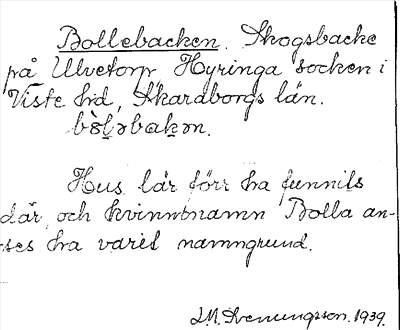 Bollebacken. Skogsbacke
på Ulvetorp, Hyringa socken i
Viste hd, Skaraborgs län.
bòl̥əbak̥ən.
Hus lär förr ha funnits
där, och kvinnonamn Bolla an-
ses ha varit namngrund.
J.M. Svenungsson. 1939.